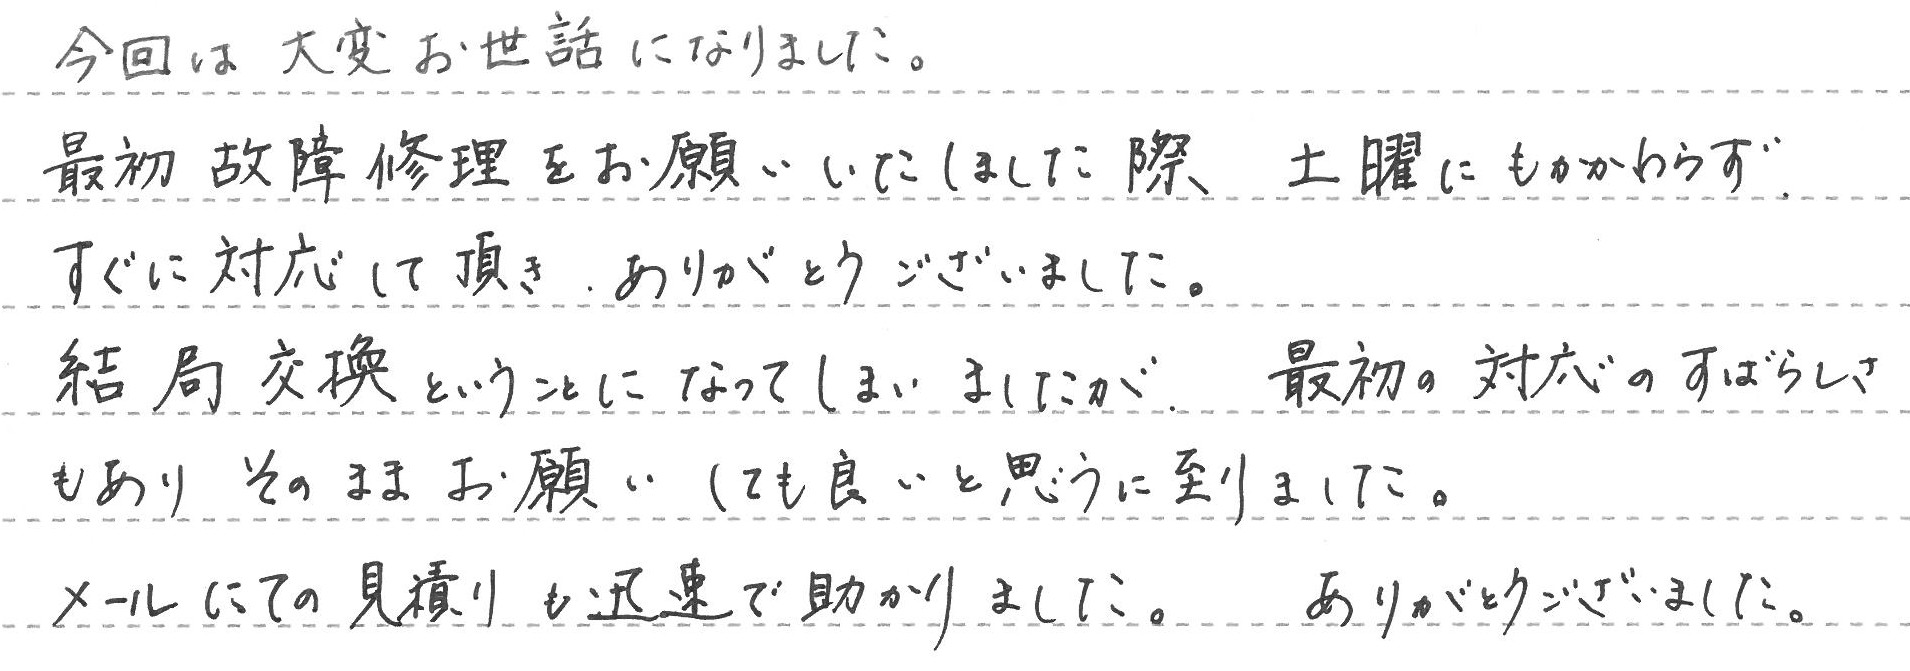 今回は 大変お世話になりました。
最初 故障修理をお願いいたしました際、 土曜にもかかわらず、
すぐに対応して頂き、ありがとうございました。
結局交換ということになってしまいましたが、 最初の対応のすばらしさ
もあり そのままお願いしても良いと思うに至りました。
メールにての見積りも迅速で助かりました。 ありがとうございました。